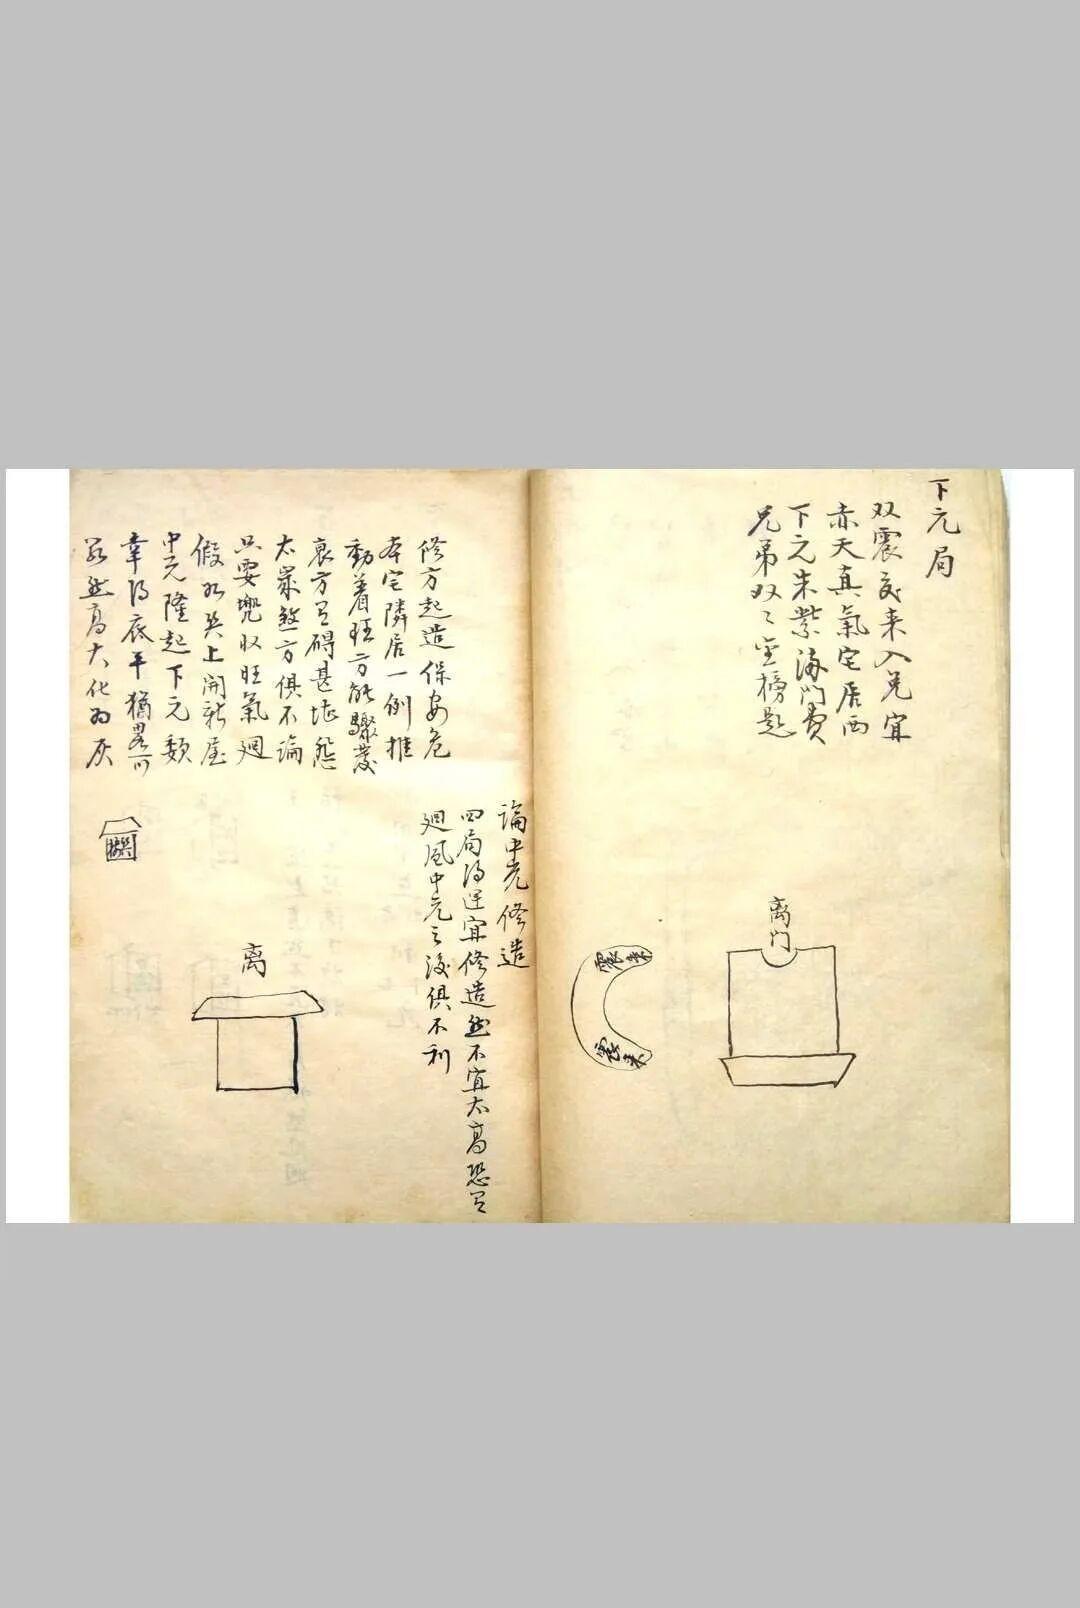 下元局
双震交来入兑宜
赤天真氣宅居西
下元朱紫滿門貴
兄弟双〻金榜題
离門
震来
震来
論中元修造
四局得運宜修造然不宜太高恐有
廻風中元之後俱不利
修方起造保安危
本宅隣居一例推
動着旺方能驟發
衰方有碍甚堪怨
太歲煞方俱不論
只要兜收旺氣廻
假如巽上開新屋
中元隆起下元頹
幸得底平猶畧可
若然高大化为灰
离
巽